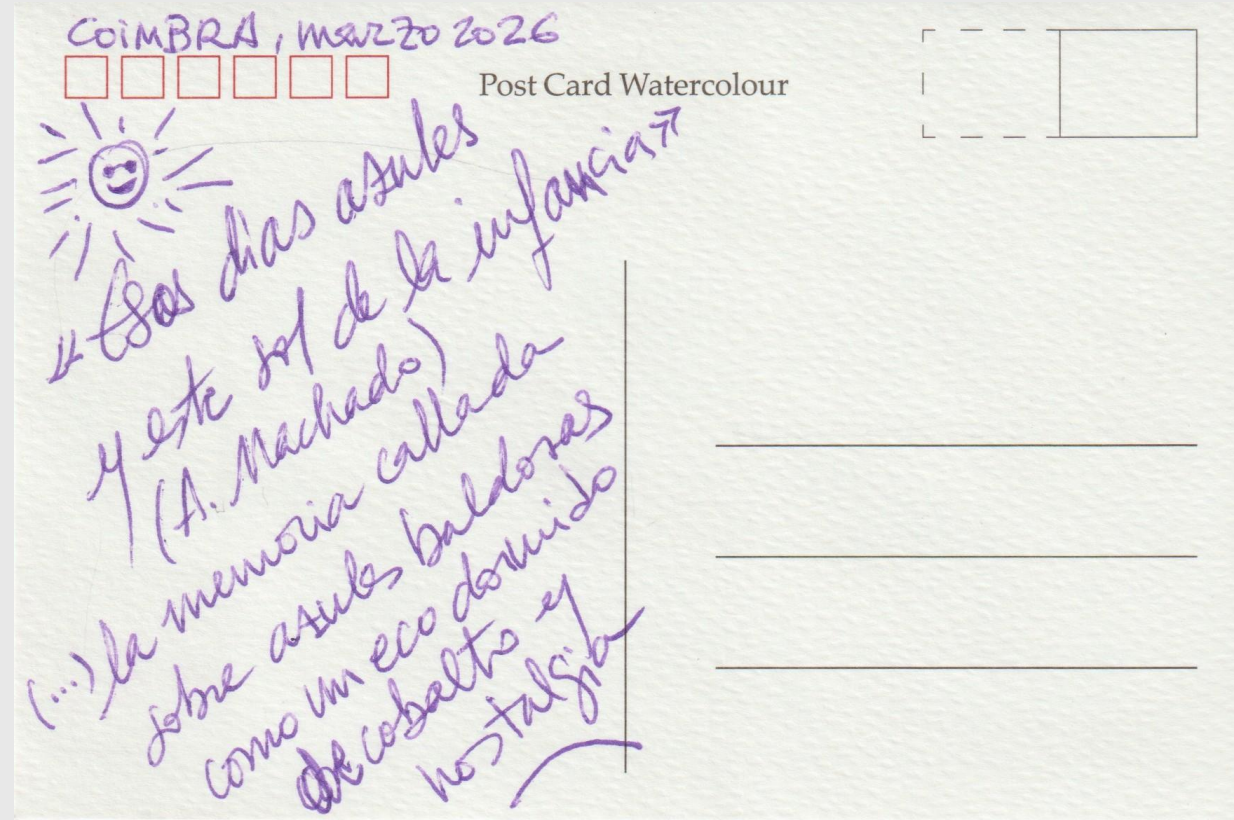 COiMBRA, marzo 2026
Post Card Watercolour
«Esos días azules
y este sol de la infancia»
(A. Machado)
(...) la memoria callada
sobre azules baldosas
como un eco dormido
de cobalto y
nostalgia